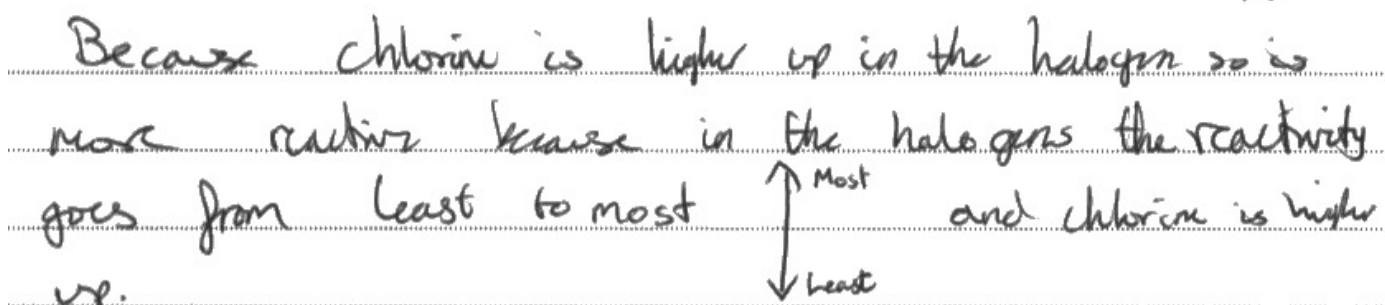 Because chlorine is higher up in the halogen so is
more reactive because in the halogens the reactivity
goes from least to most ↑ Most and chlorine is higher
up. ↓ Least